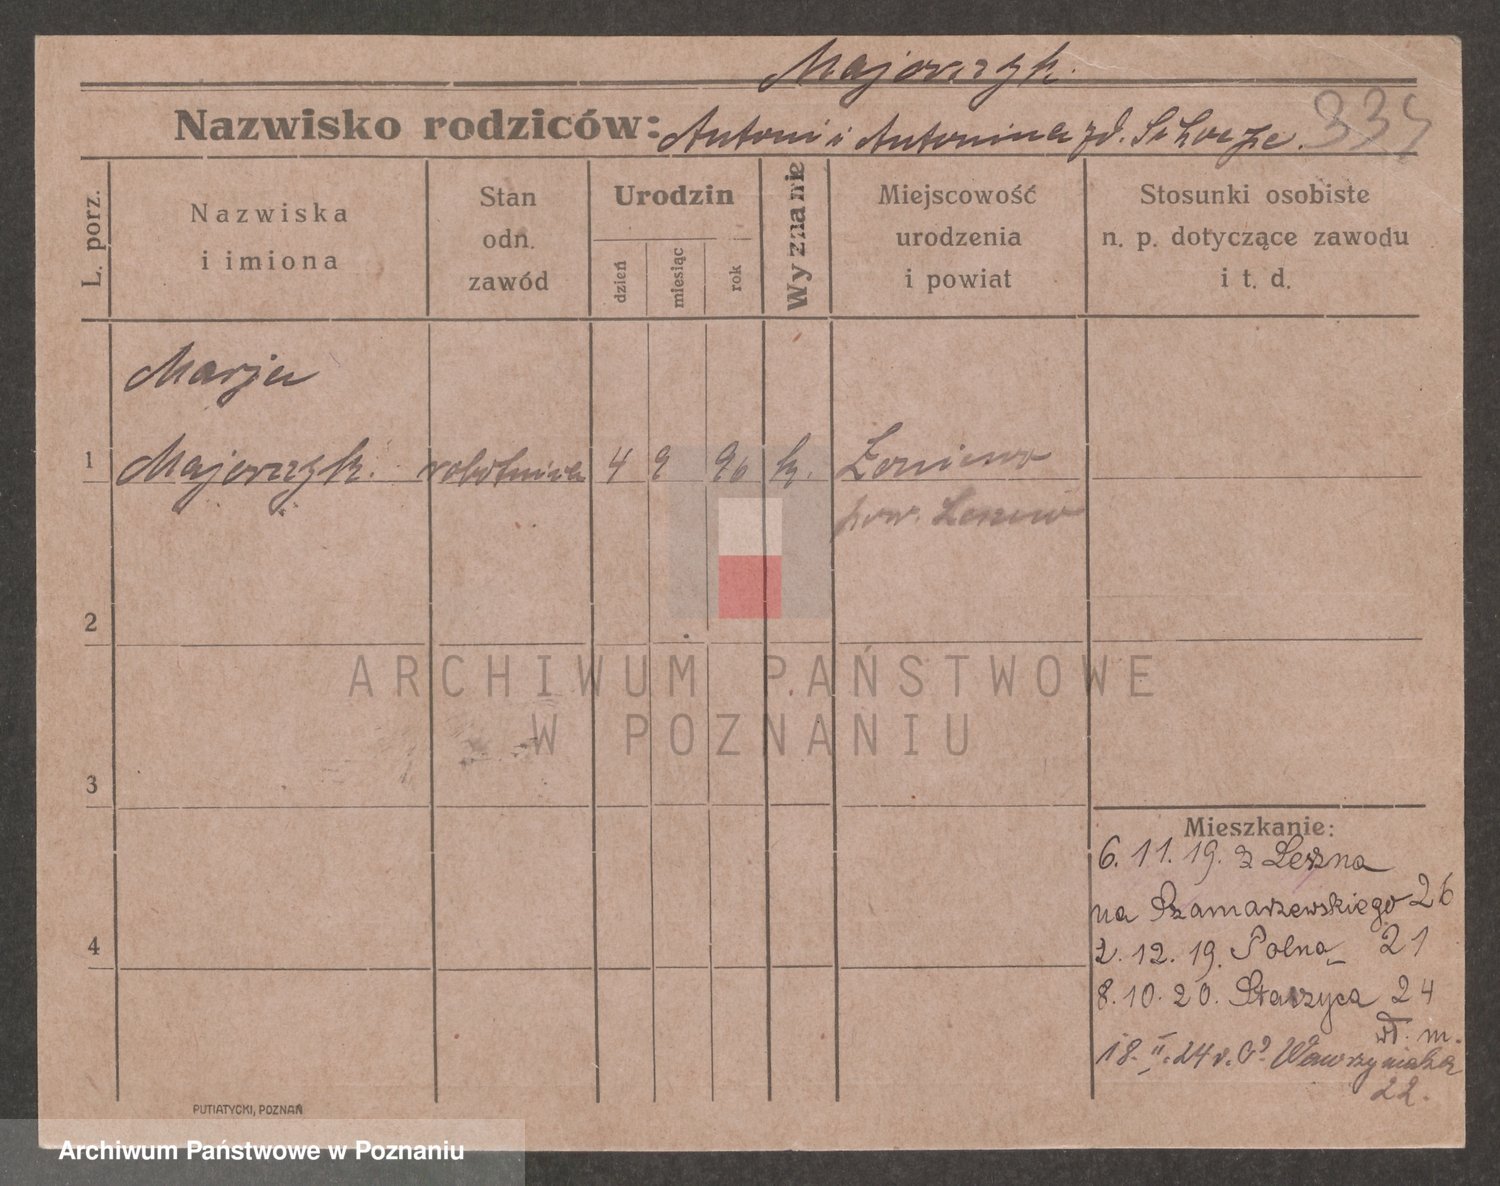 Majorczyk.
Nazwisko rodziców: Antoni i Antonina zd.
L. porz.
Nazwiska
i imiona
Stan
odn.
zawód
Urodzin
dzień
miesiąc
rok
Wyznanie
Miejscowość
urodzenia
i powiat
Stosunki osobiste
n. p. dotyczące zawodu
i t. d.
Marja
1 Majorczyk. robotnica 4 9 96 k. Łoniewo
pow.
2
3
4
Mieszkanie:
6. 11. 19. z Leszna
na Szamarzewskiego 26
2. 12. 19. Polna 21
8. 10. 20. Staszyca 24
wł. m.
18. II. 24 r. Wawrzyniaka
22.
PUTIATYCKI, POZNAŃ
ARCHIWUM PAŃSTWOWE
W POZNANIU
Archiwum Państwowe w Poznaniu